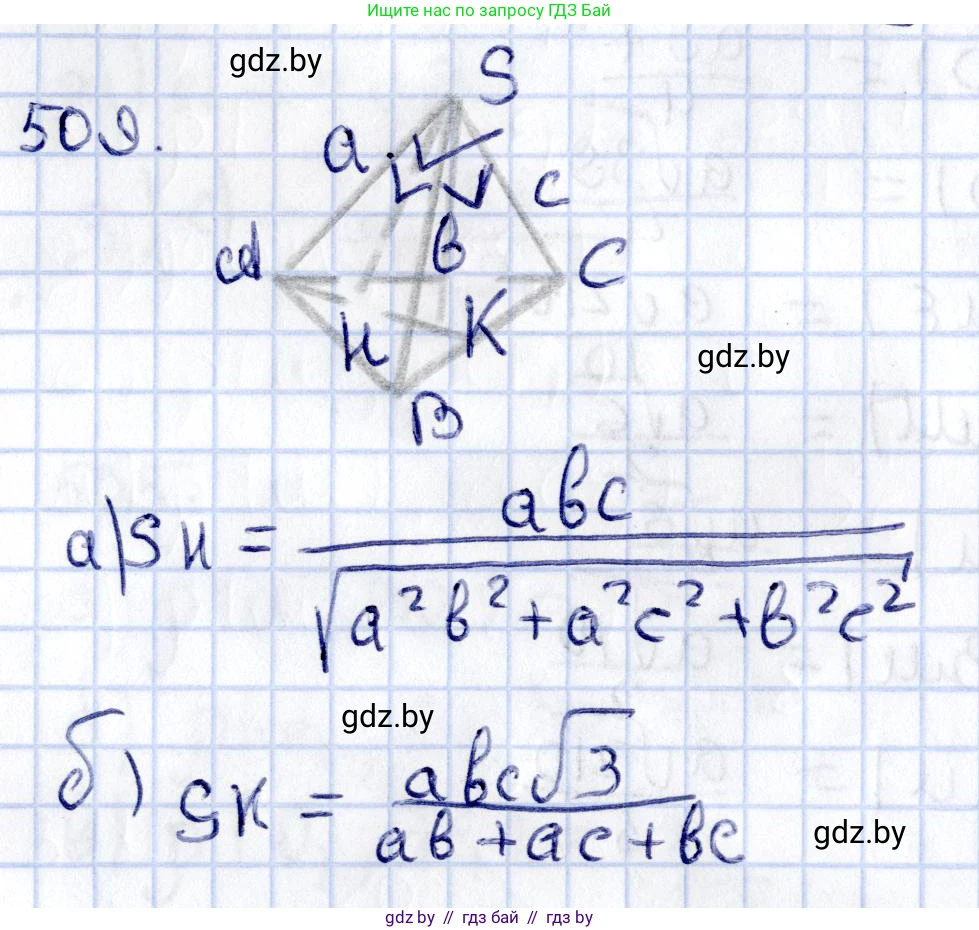 Ищите нас по запросу ГДЗ Бай
gdz.by
S
509.
a
c
A
в
C
H
K
gdz.by
B
а) SH = aвc / √(a²в² + a²c² + в²c²)
gdz.by
б) SK = aвc√3 / (aв + ac + вc)
gdz.by
gdz.by // гдз бай // гдз by